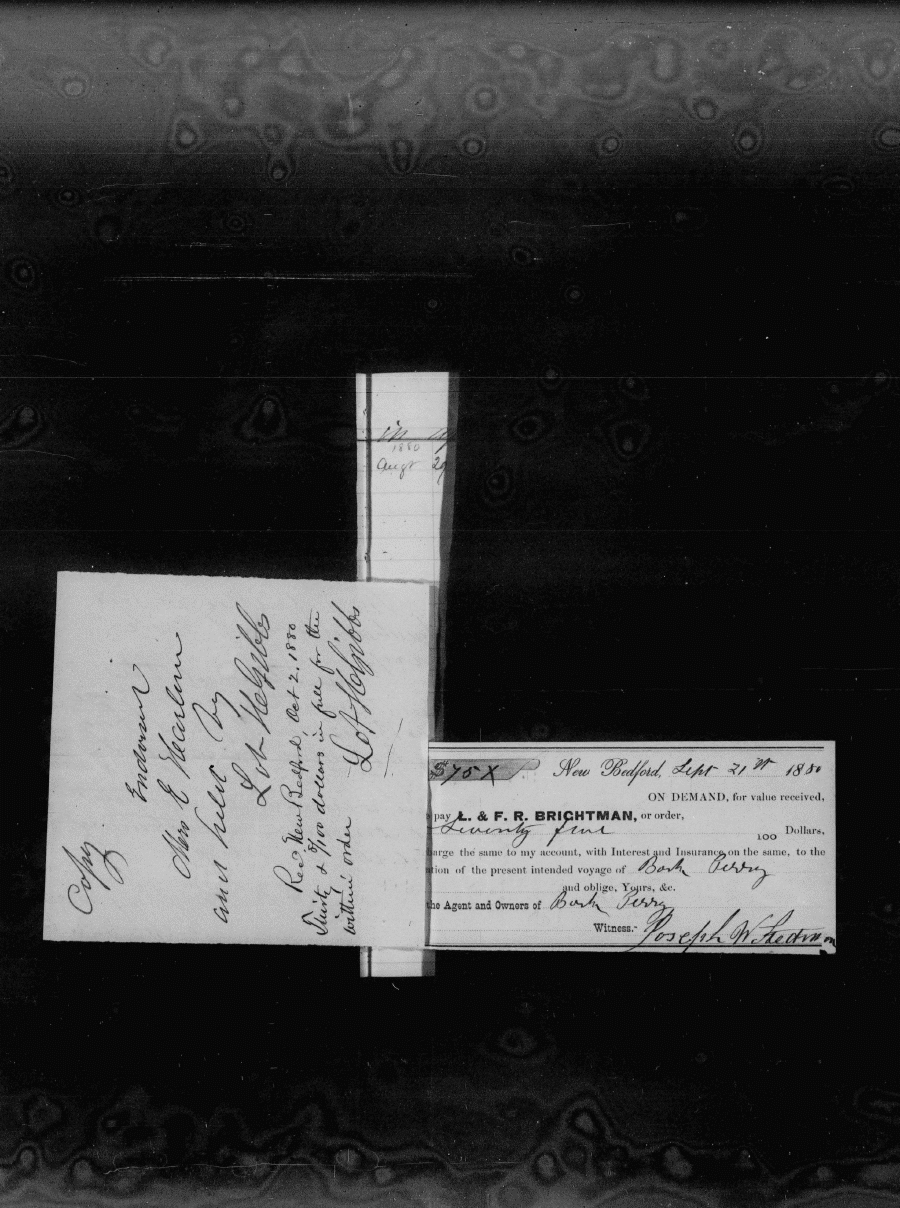 1880
Augt 29
Copy
Endorsed
Mrs E
and held by
Lot H Gibbs
Rec New Bedford, Oct 2, 1880
Thirty & /100 dollars in full for the
within order
Lot H Gibbs
$75 X New Bedford, Sept 21st 1880
ON DEMAND, for value received,
pay L. & F. R. BRIGHTMAN, or order,
Seventy five
100 Dollars,
harge the same to my account, with Interest and Insurance on the same, to the
tion of the present intended voyage of Bark Perry
and oblige, Yours, &c.
the Agent and Owners of Bark Perry
Witness.- Joseph W